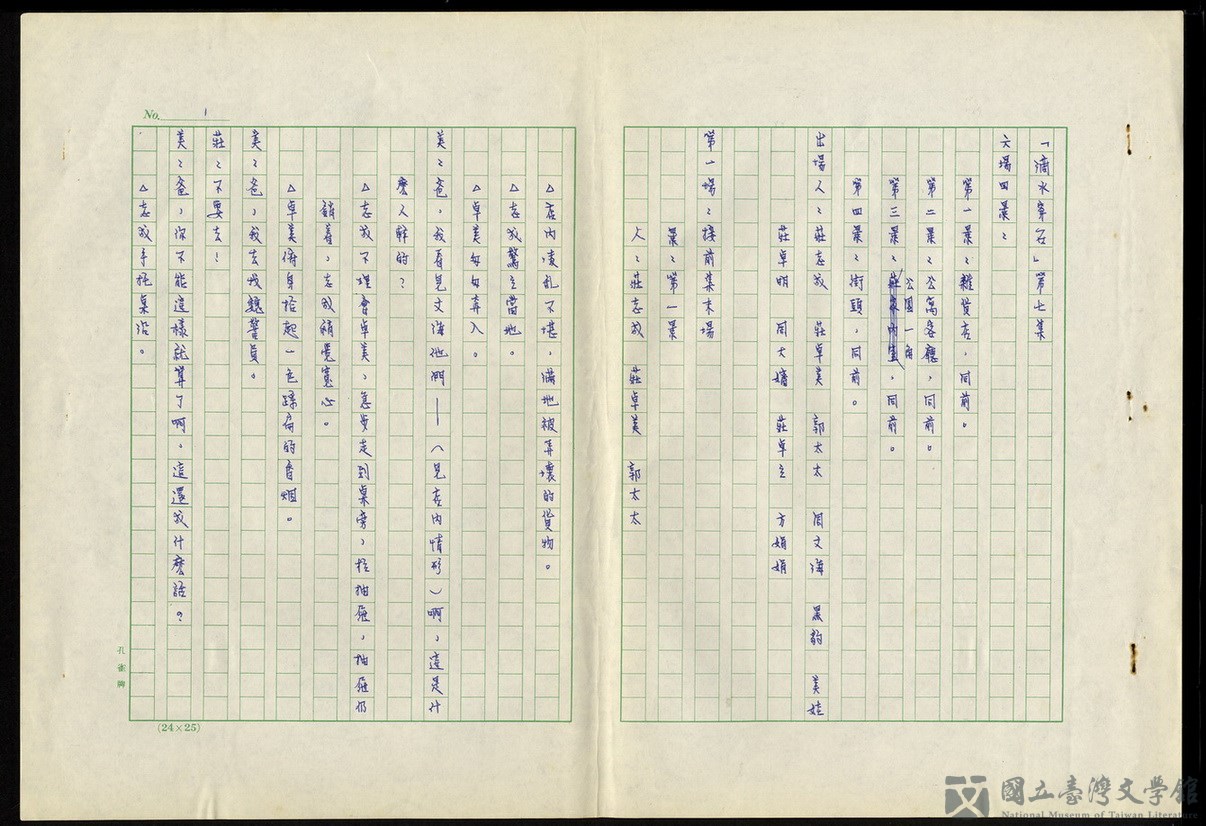 「滴水穿石」第七集
六場四景:
第一景:雜貨店,同前。
第二景:公寓客廳,同前。
第三景:公園一角,同前。
第四景:街頭,同前。
出場人:莊志成 莊卓美 郭太太 周文海 黑豹 美娃
莊卓明 周大嬸 莊卓立 方娟娟
第一場:接前集末場
景:第一景
人:莊志成 莊卓美 郭太太
No. 1
△店內凌亂不堪,滿地被弄壞的貨物。
△志成驚立當地。
△卓美匆匆奔入。
美:爸,我看見文海他們——(見店內情形)啊,這是什
麼人幹的?
△志成不理會卓美,急步走到桌旁,拉抽屜,抽屜仍
鎖著,志成稍覺寬心。
△卓美俯身拾起一包踩扁的香烟。
美:爸,我去找魏警員。
莊:不要去!
美:爸,你不能這樣就算了啊。這還成什麼話?
△志成手扶桌沿。
孔雀牌
(24×25)
國立臺灣文學館
National Museum of Taiwan Literature